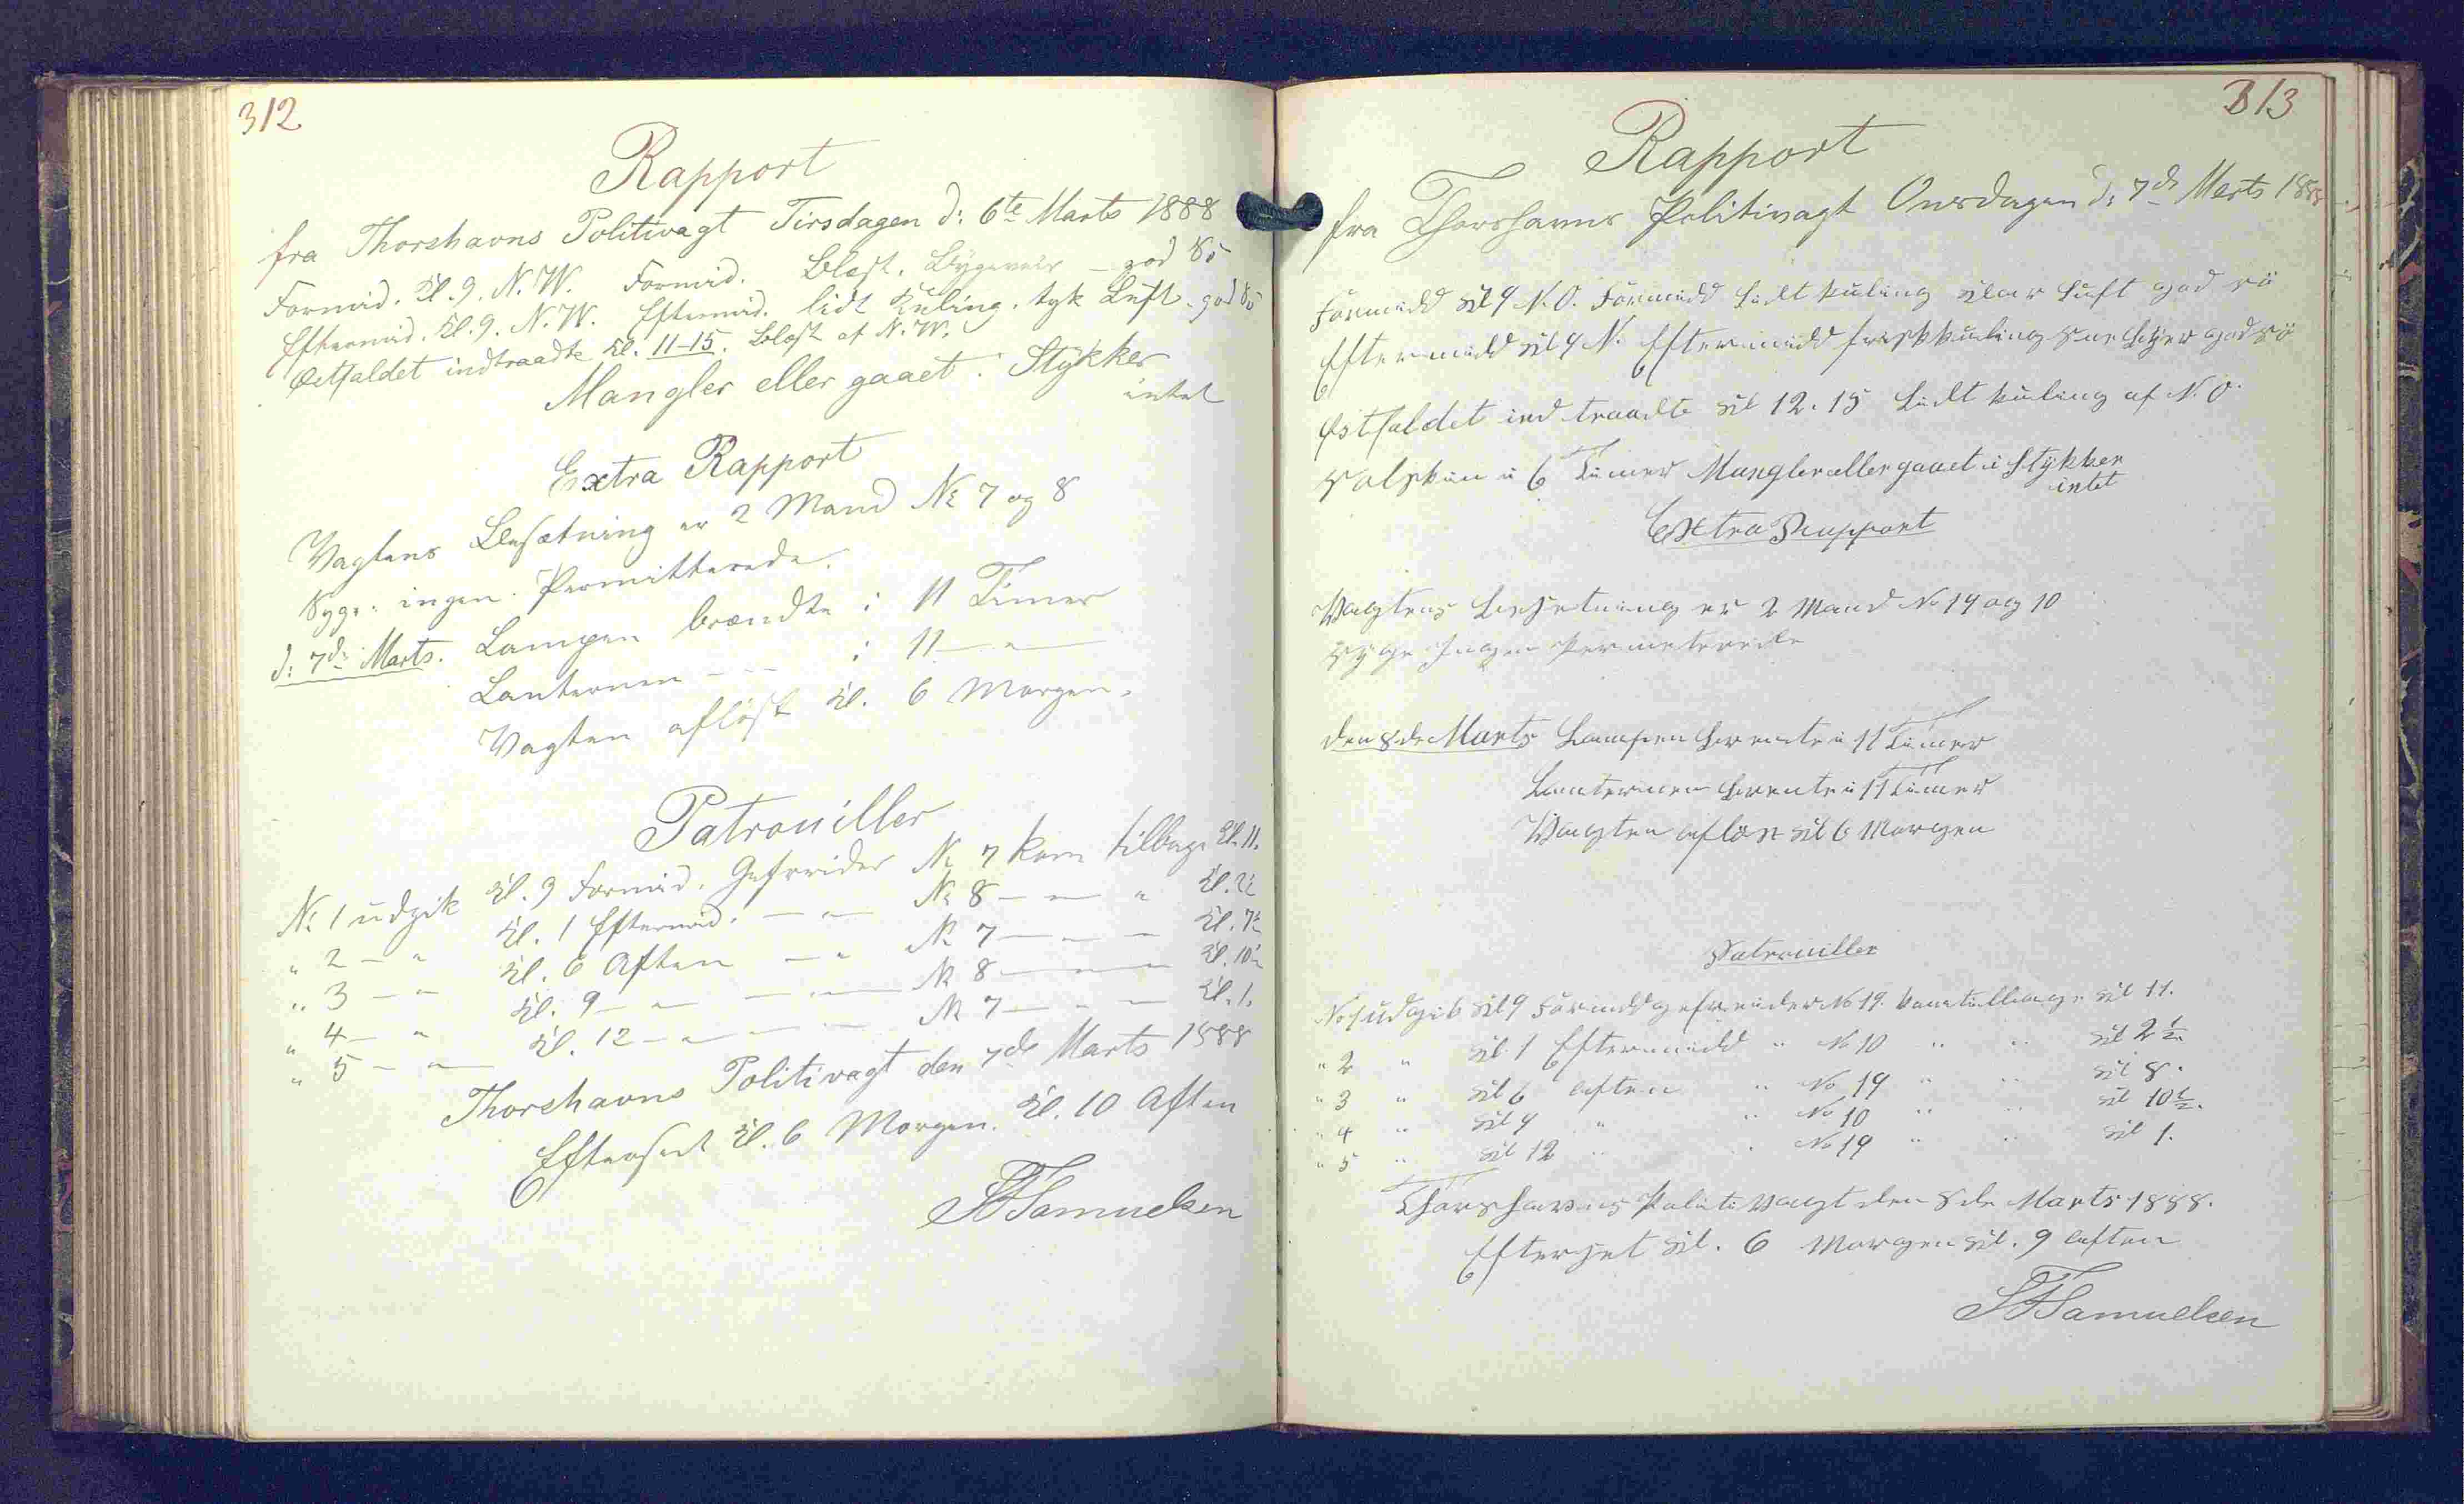 312
Rapport
fra Thorshavns Politivagt Tirsdagen d: 6te Marts 1888
Formid. Kl. 9. N. W. Formid. Blæst. Bygeveir – god Sö
Eftermid. Kl. 9. N. W. Eftermid. lidt Kuling. tyk Luft. god Sö
Østfaldet indtraadte Kl. 11-15. Blæst af N. W.
Mangler eller gaaet i Stykker
intet
Extra Rapport
Vagtens Besætning er 2 Mand No 7 og 8
Syge: ingen. Permitterede.
d: 7de Marts. Lampen brændte i 11 Timer
Lanternen – – i 11 – " –
Vagten aflöst Kl. 6 Morgen.
Patrouiller
No 1 udgik Kl. 9 Formid. Gefreider No 7 kom tilbage Kl. 11.
" 2 – " Kl. 1 Eftermid. – " – No 8 – " – " Kl. 2½
" 3 – " Kl. 6 Aften – " No 7 – " – Kl. 7½
" 4 – " Kl. 9 – " – " – No 8 – " – Kl. 10½
" 5 – " – Kl. 12 – " – " – No 7 – " – Kl. 1.
Thorshavns Politivagt den 7de Marts 1888
Efterseet Kl. 6 Morgen. Kl. 10 Aften
Samuelsen
313
Rapport
fra Thorshavns Politivagt Onsdagen d: 7de Marts 1888
Formidd Kl 9 N. O. Formidd Lidt kuling Klar Luft god sö
Eftermidd Kl 9 N. Eftermidd frisk kuling Sne byer god sö
Østfaldet ind traadte Kl 12. 15 Lidt kuling af N. O.
Solskin i 6 Timer Mangler eller gaaet i Stykker
intet
Extra Rapport
Vagtens Besetning er 2 Mand No 19 og 10
Syge Ingen Permeterede
den 8de Marts Lampen brente i 11 Timer
Lanternen brente i 11 Timer
Vagten aflöst Kl 6 Morgen
Patrouiller
No 1 udgik Kl 9 Formidd gefreider No 19. kom tilbage Kl 11.
" 2 " Kl. 1 Eftermidd " No 10 " " Kl 2½
" 3 " Kl 6 aften " No 19 " " Kl 8.
" 4 " Kl 9 " " No 10 " " Kl 10½.
" 5 " Kl 12 " " No 19 " " Kl 1.
Thorshavns Politi vagt den 8de Marts 1888.
Efterset Kl. 6 Morgen Kl. 9 aften
Samuelsen